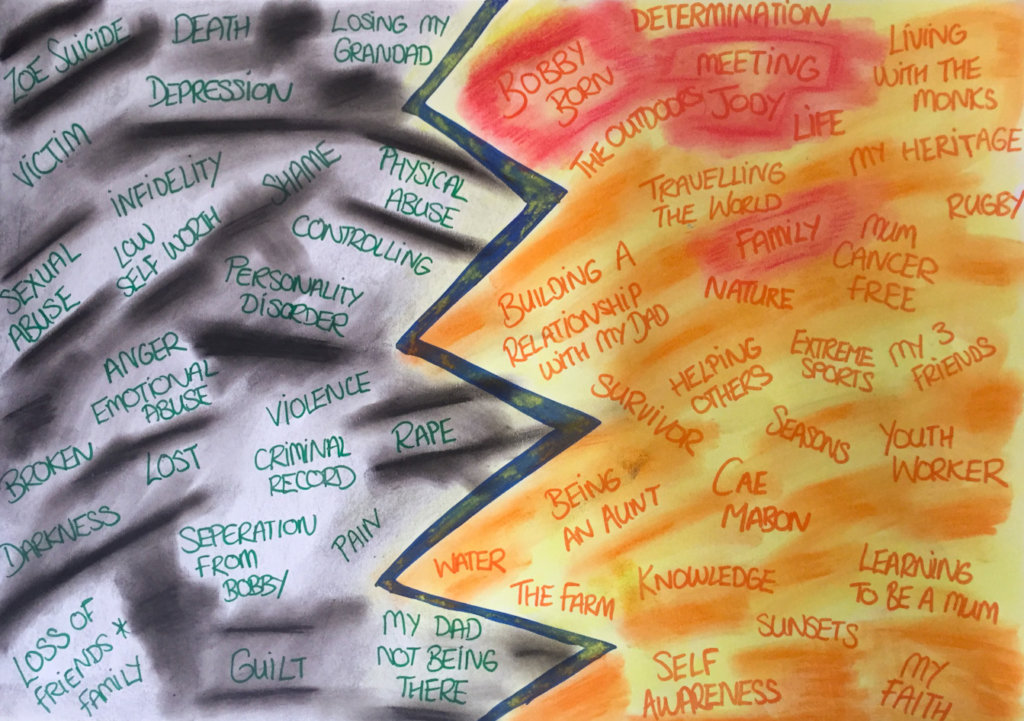 ZOE SUICIDE
DEATH
LOSING MY
GRANDAD
DEPRESSION
VICTIM
INFIDELITY
SHAME
PHYSICAL
ABUSE
SEXUAL
ABUSE
LOW
SELF WORTH
CONTROLLING
PERSONALITY
DISORDER
ANGER
EMOTIONAL
ABUSE
VIOLENCE
BROKEN
LOST
CRIMINAL
RECORD
RAPE
DARKNESS
SEPERATION
FROM
BOBBY
PAIN
LOSS OF
FRIENDS *
FAMILY
GUILT
MY DAD
NOT BEING
THERE
DETERMINATION
BOBBY
BORN
MEETING
JODY
LIVING
WITH THE
MONKS
THE OUTDOORS
LIFE
MY HERITAGE
TRAVELLING
THE WORLD
RUGBY
FAMILY
MUM
CANCER
FREE
BUILDING A
RELATIONSHIP
WITH MY DAD
NATURE
HELPING
OTHERS
EXTREME
SPORTS
MY 3
FRIENDS
SURVIVOR
SEASONS
YOUTH
WORKER
BEING
AN AUNT
CAE
MABON
WATER
THE FARM
KNOWLEDGE
LEARNING
TO BE A MUM
SUNSETS
SELF
AWARENESS
MY
FAITH